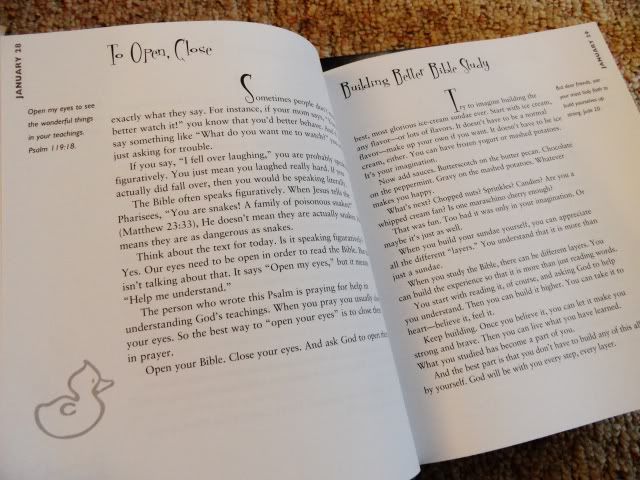 JANUARY 28
To Open, Close
Open my eyes to see
the wonderful things
in your teachings.
Psalm 119:18.
Sometimes people don't
exactly what they say. For instance, if your mom says,
better watch it!" you know that you'd better behave. And
say something like "What do you want me to watch?"
just asking for trouble.
If you say, "I fell over laughing," you are probably
figuratively. You just mean you laughed really hard. If
actually did fall over, then you would be speaking literally.
The Bible often speaks figuratively. When Jesus tells the
Pharisees, "You are snakes! A family of poisonous snakes"
(Matthew 23:33), He doesn't mean they are actually snakes.
means they are as dangerous as snakes.
Think about the text for today. Is it speaking figuratively?
Yes. Our eyes need to be open in order to read the Bible.
isn't talking about that. It says "Open my eyes," but it means
"Help me understand."
The person who wrote this Psalm is praying for help in
understanding God's teachings. When you pray you usually close
your eyes. So the best way to "open your eyes" is to close them
in prayer.
Open your Bible. Close your eyes. And ask God to open them.
C
JANUARY 29
Building Better Bible Study
But dear friends, use
your most holy faith to
build yourselves up
strong. Jude 20.
Try to imagine building the
best, most glorious ice-cream sundae ever. Start with ice cream,
any flavor—or lots of flavors. It doesn't have to be a normal
flavor—make up your own if you want. It doesn't have to be ice
cream, either. You can have frozen yogurt or mashed potatoes.
It's your imagination.
Now add sauces. Butterscotch on the butter pecan. Chocolate
on the peppermint. Gravy on the mashed potatoes. Whatever
makes you happy.
What's next? Chopped nuts? Sprinkles? Candies? Are you a
whipped cream fan? Is one maraschino cherry enough?
That was fun. Too bad it was only in your imagination. Or
maybe it's just as well.
When you build your sundae yourself, you can appreciate
all the different "layers." You understand that it is more than
just a sundae.
When you study the Bible, there can be different layers. You
can build the experience so that it is more than just reading words.
You start with reading it, of course, and asking God to help
you understand. Then you can build it higher. You can take it to
heart—believe it, feel it.
Keep building. Once you believe it, you can let it make you
strong and brave. Then you can live what you have learned.
What you studied has become a part of you.
And the best part is that you don't have to build any of this all
by yourself. God will be with you every step, every layer.